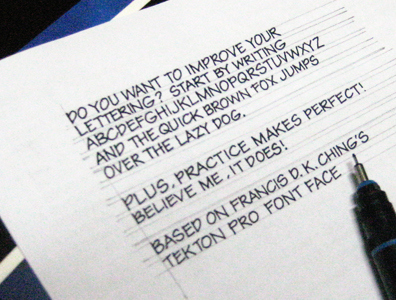 DO YOU WANT TO IMPROVE YOUR
LETTERING? START BY WRITING
ABCDEFGHIJKLMNOPQRSTUVWXYZ
AND THE QUICK BROWN FOX JUMPS
OVER THE LAZY DOG.
PLUS, PRACTICE MAKES PERFECT!
BELIEVE ME, IT DOES!
BASED ON FRANCIS D.K. CHING'S
TEKTON PRO FONT FACE